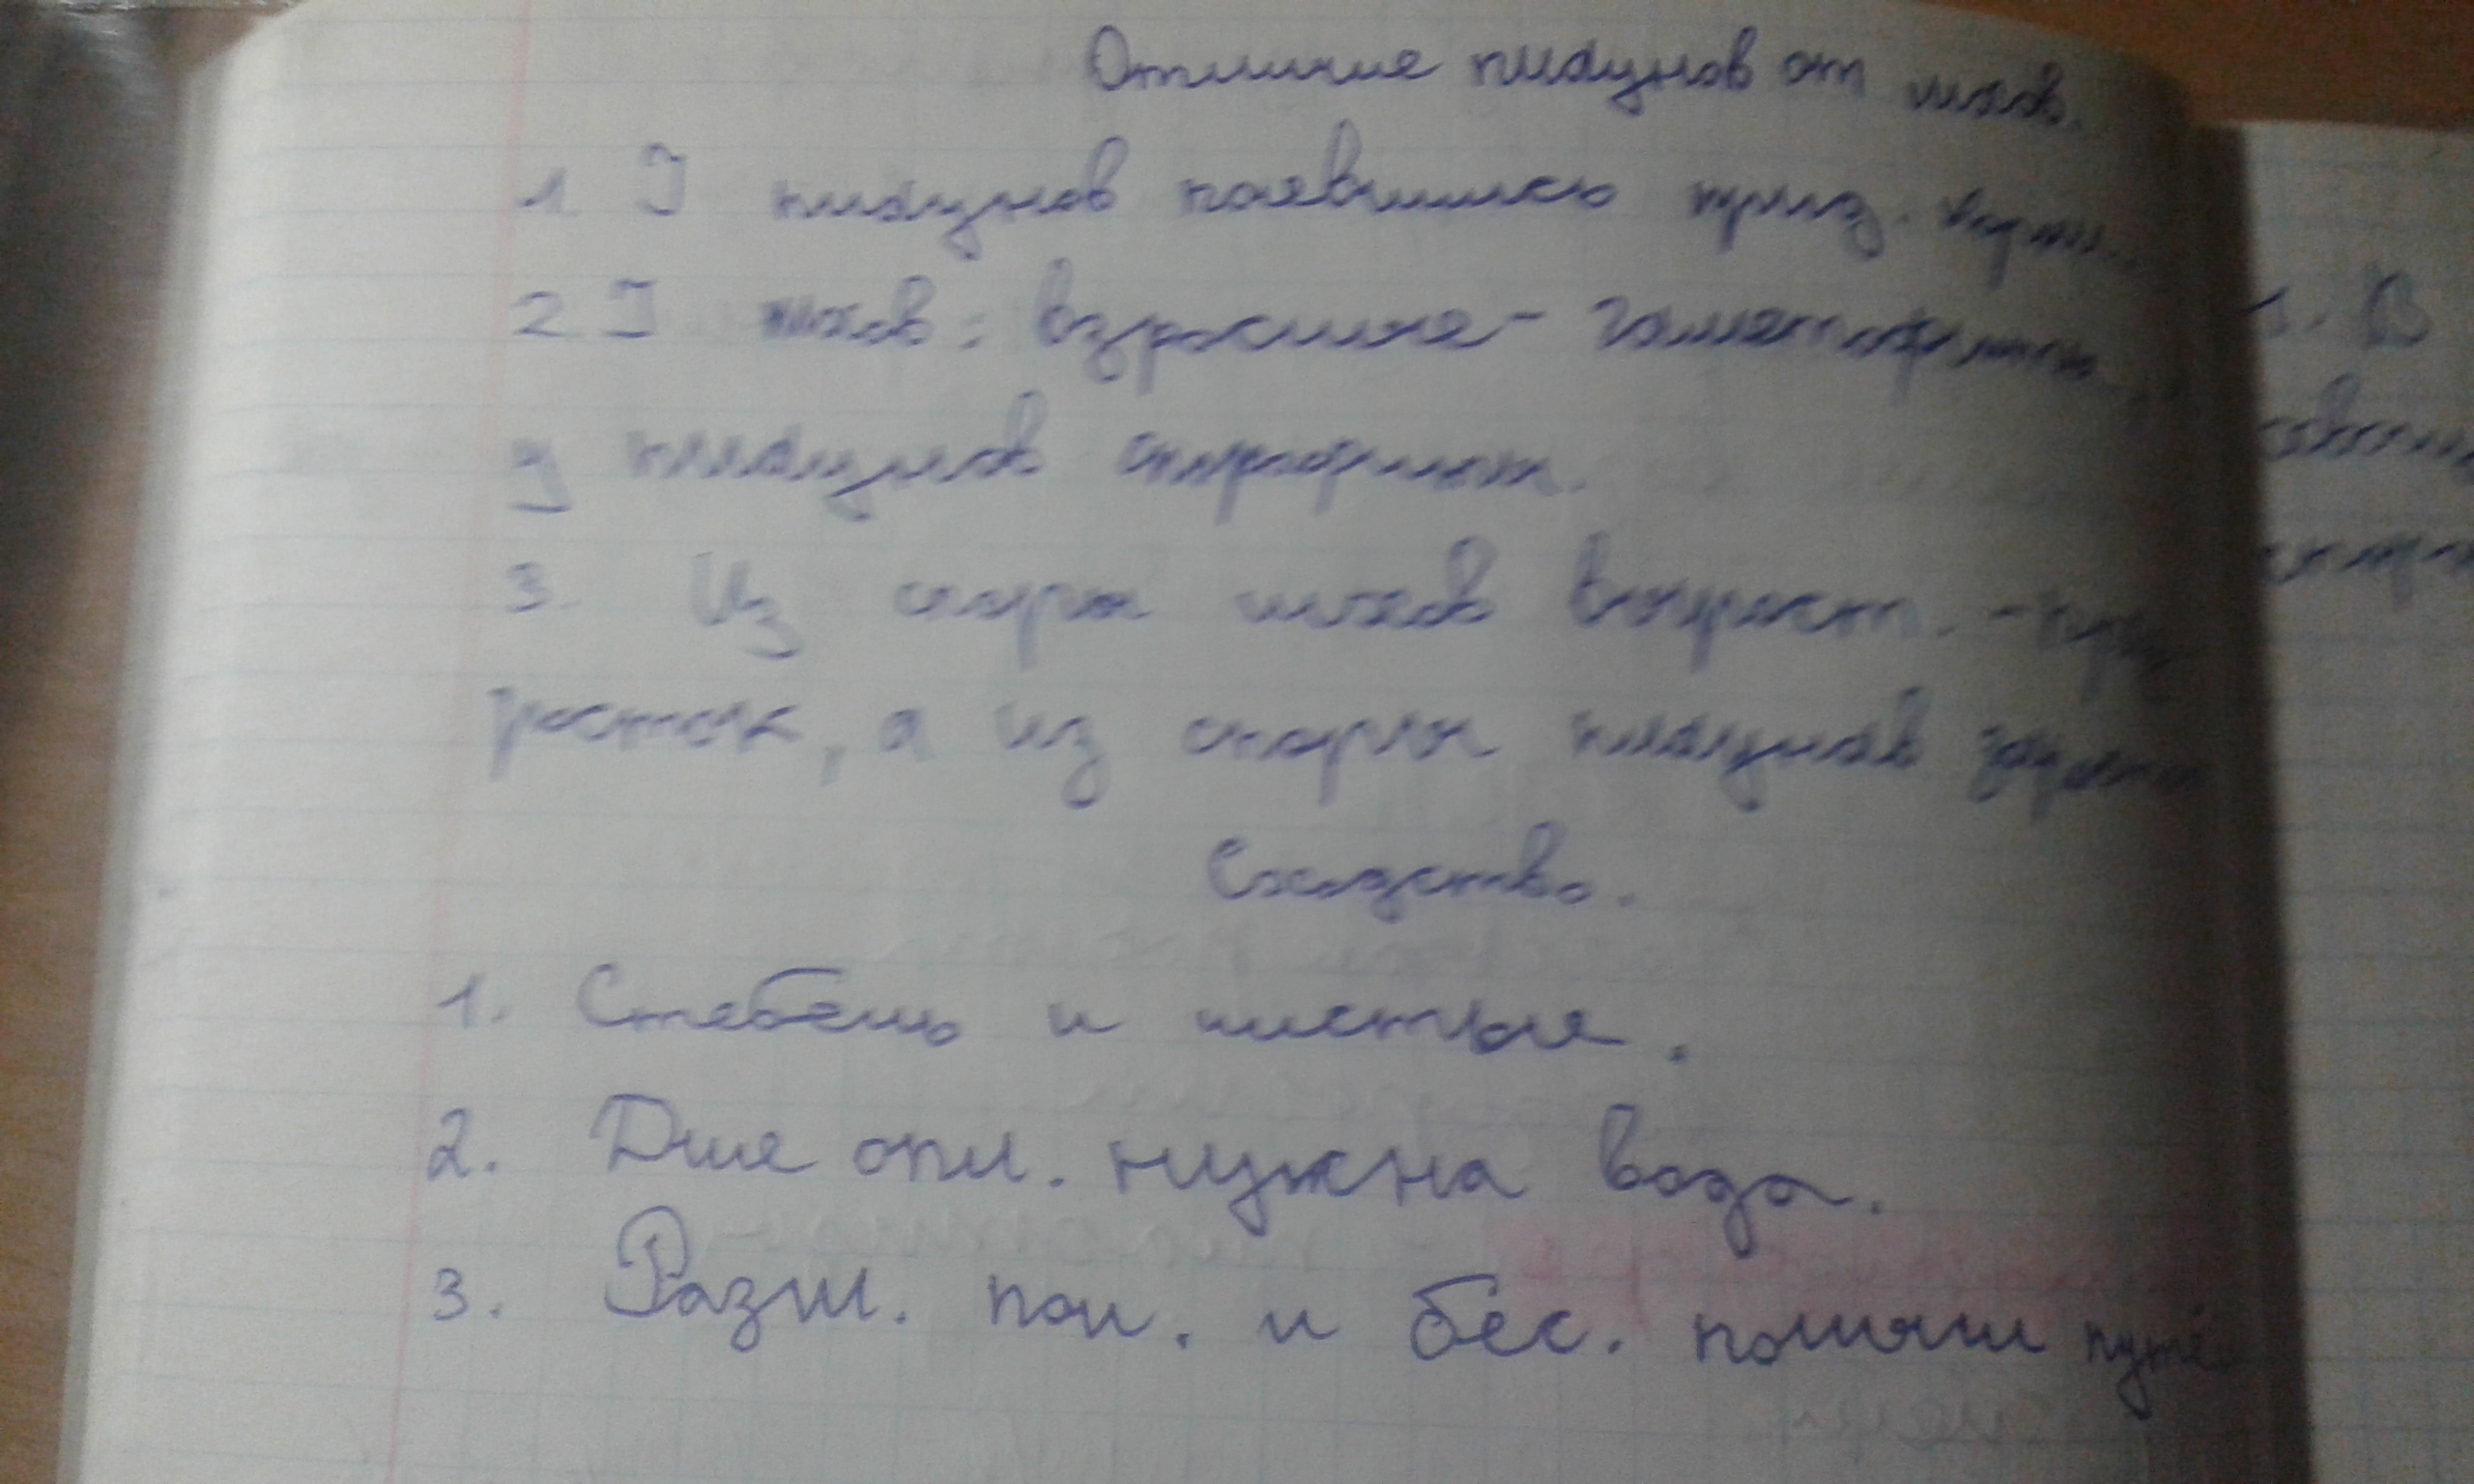 Отличие плаунов от мхов.
1. У плаунов появились придз. корни.
2 У мхов: взрослые - гаметофиты,
у плаунов спорофит.
3. Из споры мхов вырост. -
росток, а из споры плаунов
Сходство.
1. Стебель и листья.
2. Для опл. нужна вода.
3. Разм. пол. и бес. полыми путём
В